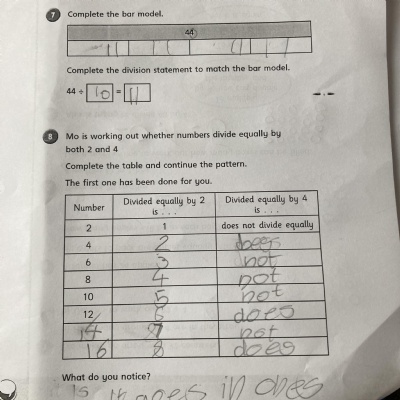 7 Complete the bar model.
44
11 11 11 11
Complete the division statement to match the bar model.
44 ÷ 10 = 11
8 Mo is working out whether numbers divide equally by
both 2 and 4
Complete the table and continue the pattern.
The first one has been done for you.
Number Divided equally by 2 is . . . Divided equally by 4 is . . .
2 1 does not divide equally
4 2 does
6 3 not
8 4 not
10 5 not
12 6 does
14 7 not
16 8 does
What do you notice?
in ones